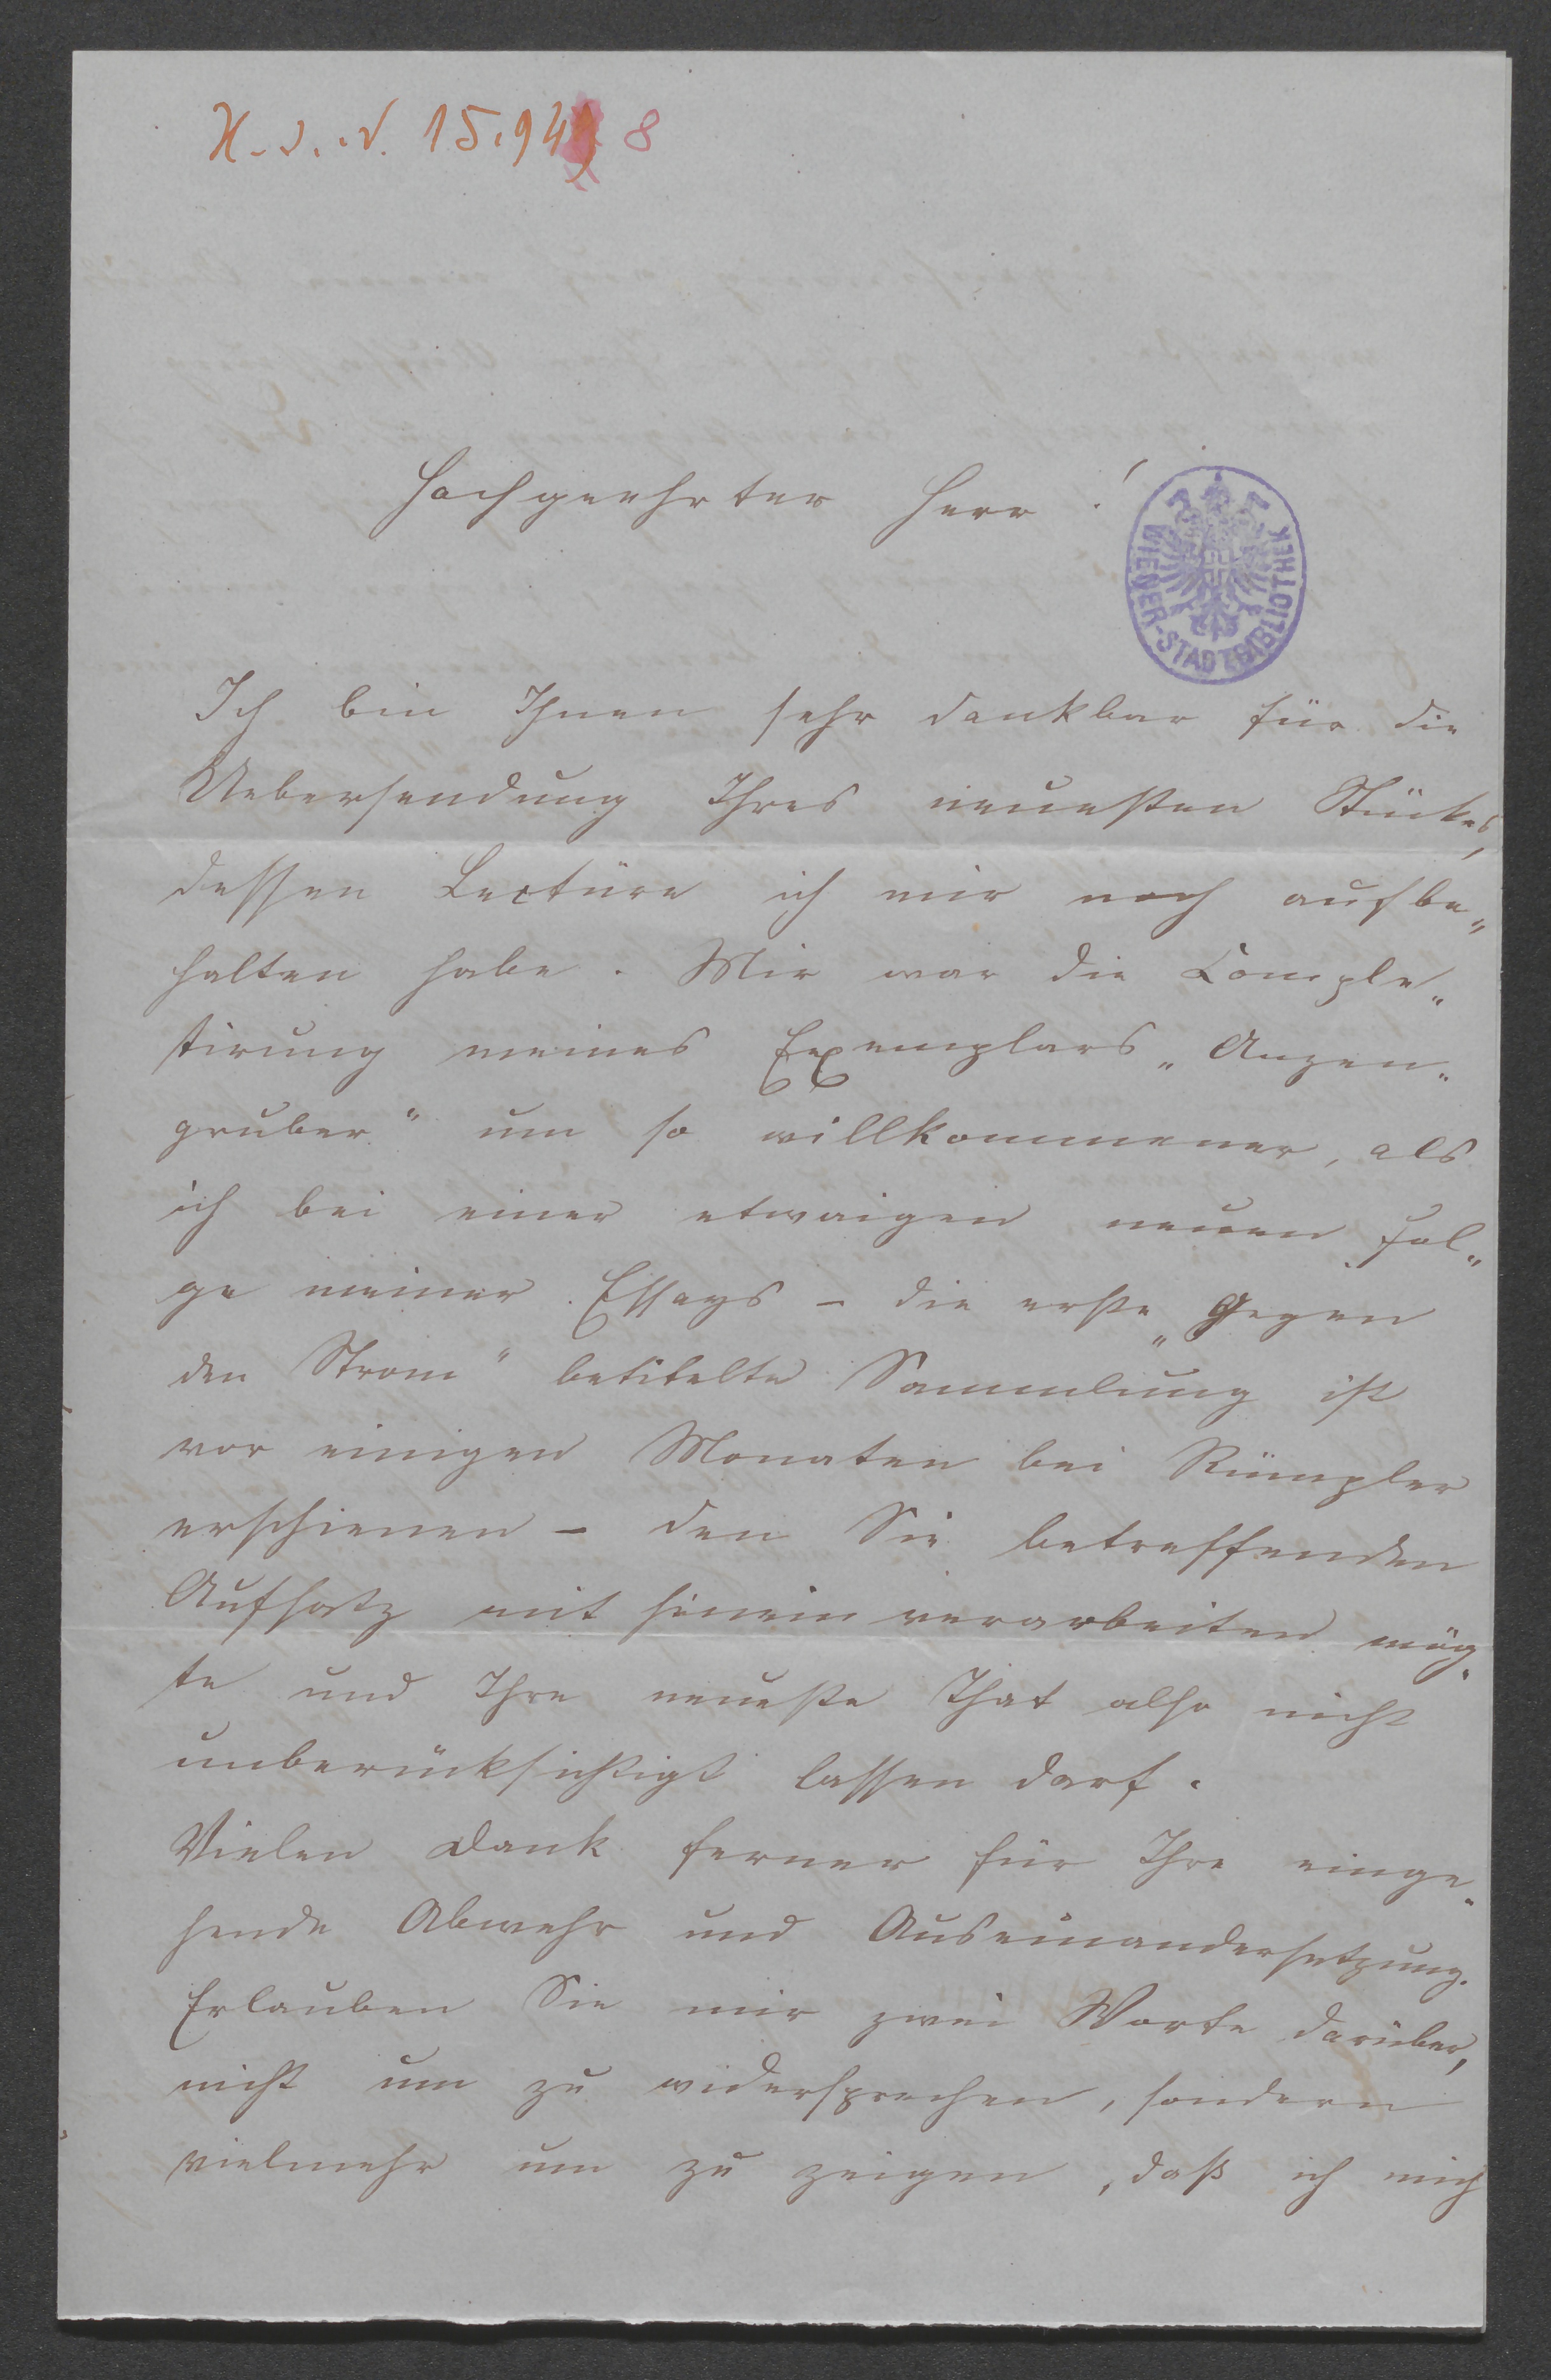 H. I. N. 15.949 8
Hochgeehrter Herr!
WIENER-STADTBIBLIOTHEK
Ich bin Ihnen sehr dankbar für die
Uebersendung Ihres neuesten Stückes,
dessen Lectüre ich mir noch aufbe„
halten habe. Mir war die Comple„
tirung meines Exemplars „Anzen„
gruber“ um so willkommener, als
ich bei einer etwaigen neuen Fol„
ge meiner Essays – die erste „Gegen
den Strom“ betitelte Sammlung ist
vor einigen Monaten bei Rümpler
erschienen – den Sie betreffenden
Aufsatz mit hinein verarbeiten mög„
te und Ihre neueste That also nicht
unberücksichtigt lassen darf.
Vielen Dank ferner für Ihre einge„
hende Abwehr und Auseinandersetzung.
Erlauben Sie mir zwei Worte darüber,
nicht um zu widersprechen, sondern
vielmehr um zu zeigen, daß ich mich